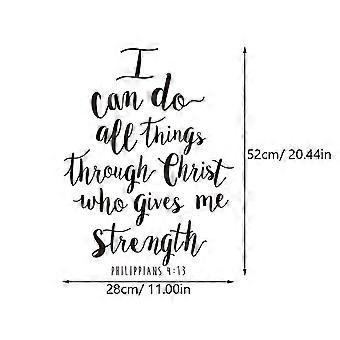 I
can do
all things
through Christ
who gives me
strength
PHILIPPIANS 4:13
52cm/ 20.44in
28cm/ 11.00in